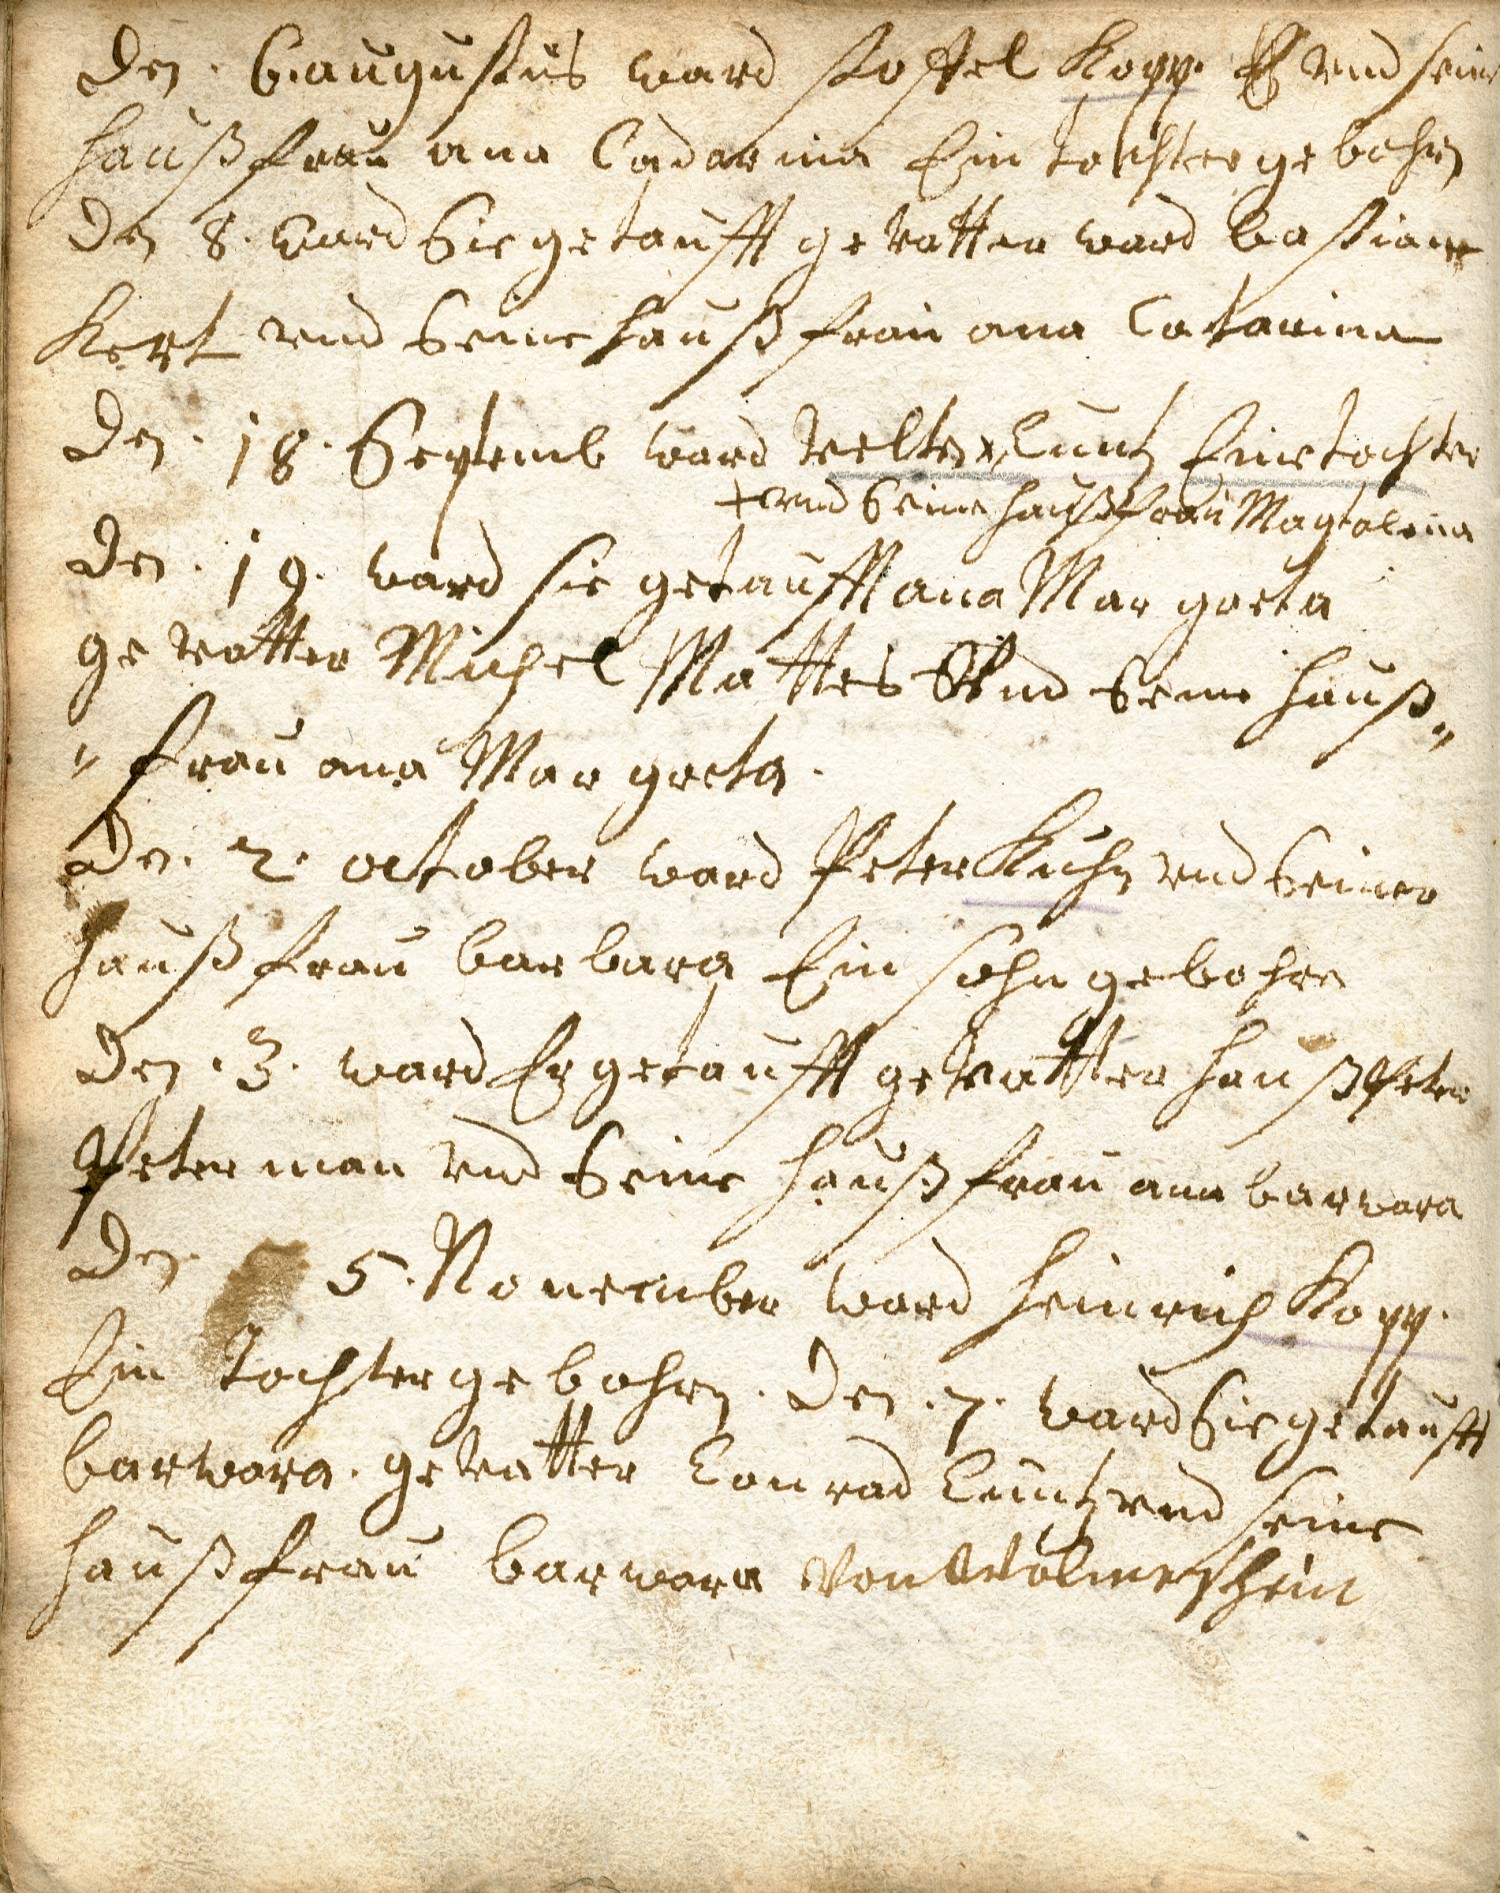 Den. 6. augustus ward stoffel Kopp. vnd seine
haußfrau ana Cadarina Ein tochter gebohrn
Den 8. ward Sie getaufft gevatter ward bastian
Kert vnd Seine haußfrau ana Catarina
Den. 18. Septemb ward velten + Cuntz Eine tochter
+ vnd Seine haußfrau Magtalena
Den. 19. ward sie getaufft ana Margreta
gevatter Michel Mattes Vnd Seine hauß„
„ frau ana Margreta.
Den. 2. october ward Peter Kuhn vnd Seiner
haußfrau barbara Ein sohn gebohren
Den. 3. ward Er getaufft gevatter hanß Peter
Peterman vnd Seine haußfrau ana barwara
Den 5. Nouember ward heinrich Kopp.
Ein tochter gebohrn. Den. 7. ward Sie getaufft
barwara. gevatter Conrad Cuntz vnd seine
haußfrau barwara von wolmeshein